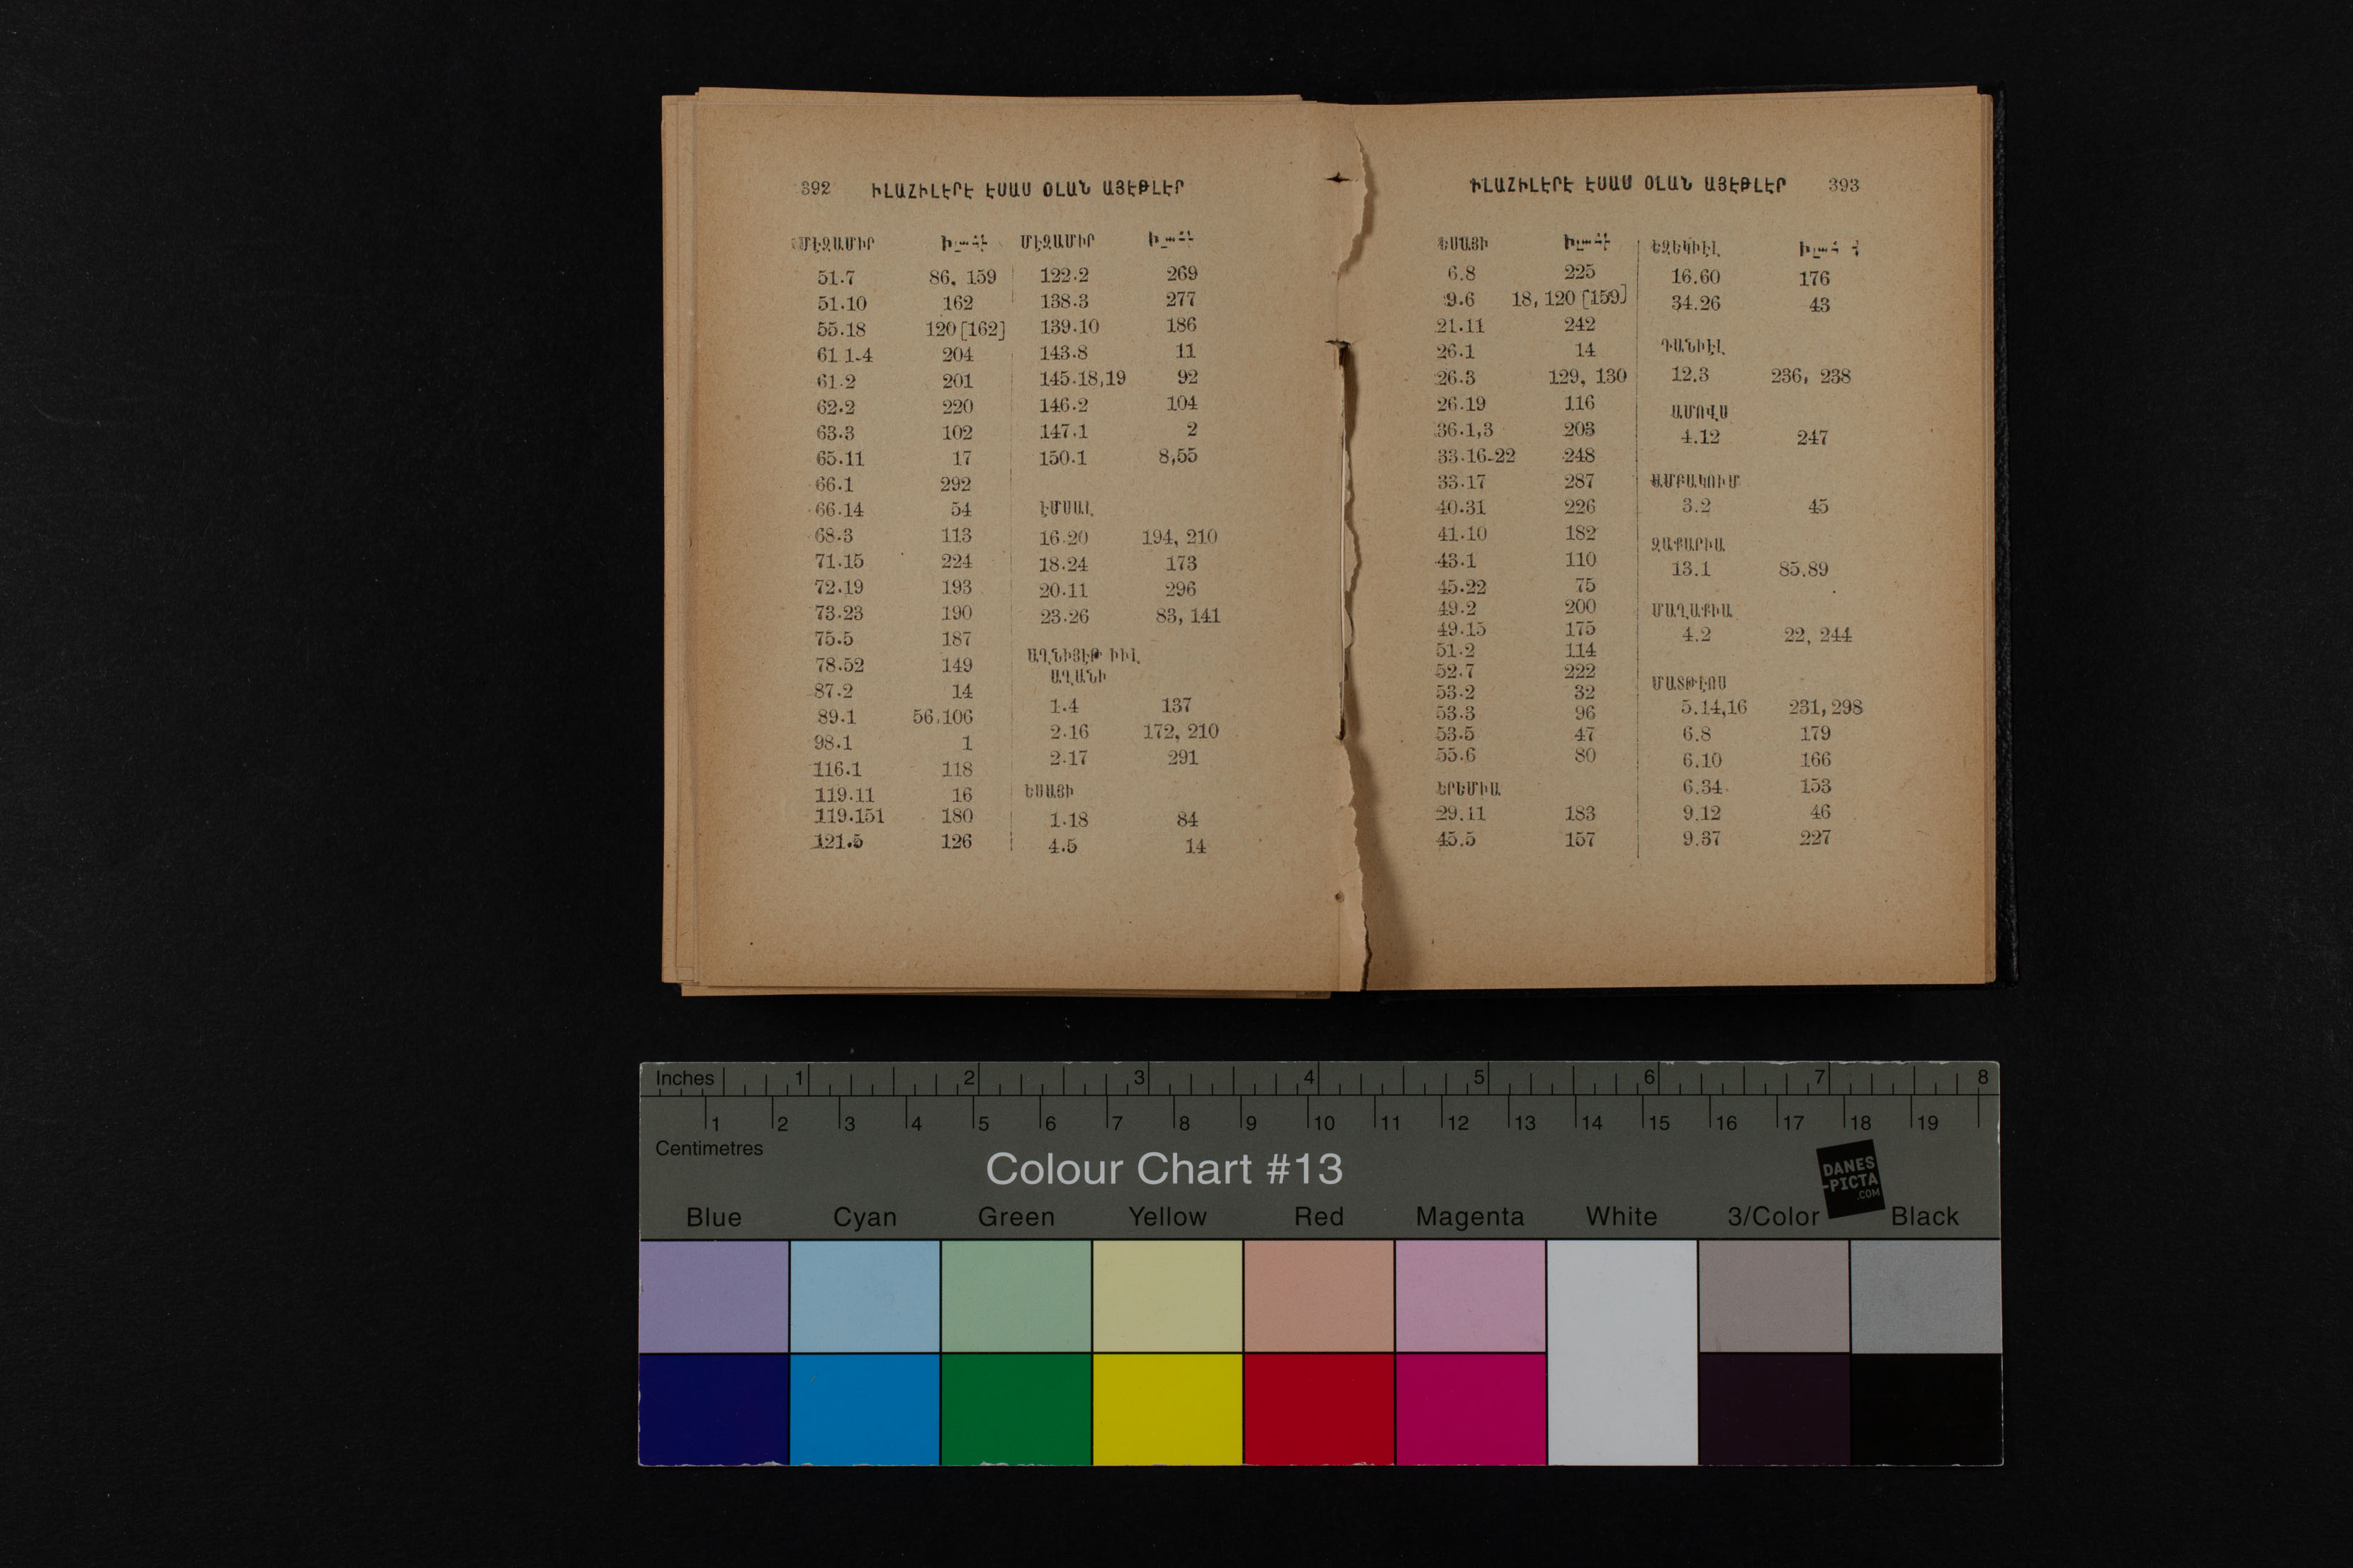 392 ԻԼԱՀԻԼԷՐԷ ԷՍԱՍ ՕԼԱՆ ԱՅԷԹԼԷՐ
ՄԷԶԱՄԻՐ
51.7 86, 159
51.10 162
55.18 120 [162]
61 1-4 204
61.2 201
62.2 220
63.3 102
65.11 17
66.1 292
66.14 54
68.3 113
71.15 224
72.19 193
73.23 190
75.5 187
78.52 149
87.2 14
89.1 56,106
98.1 1
116.1 118
119.11 16
119.151 180
121.5 126
ՄԷԶԱՄԻՐ
122.2 269
138.3 277
139.10 186
143.8 11
145.18,19 92
146.2 104
147.1 2
150.1 8,55
ԷՄՍԱԼ
16.20 194, 210
18.24 173
20.11 296
23.26 83, 141
ԱՂՆԻՅԷԹ ԻՒԼ
ԱՂԱՆԻ
1.4 137
2.16 172, 210
2.17 291
ԵՍԱՅԻ
1.18 84
4.5 14
ԻԼԱՀԻԼԷՐԷ ԷՍԱՍ ՕԼԱՆ ԱՅԷԹԼԷՐ 393
ԵՍԱՅԻ
6.8 225
9.6 18, 120 [159]
21.11 242
26.1 14
26.3 129, 130
26.19 116
36.1,3 203
33.16-22 248
33.17 287
40.31 226
41.10 182
43.1 110
45.22 75
49.2 200
49.15 175
51.2 114
52.7 222
53.2 32
53.3 96
53.5 47
55.6 80
ԵՐԵՄԻԱ
29.11 183
45.5 157
ԵԶԵԿԻԷԼ
16.60 176
34.26 43
ԴԱՆԻԷԼ
12.3 236, 238
ԱՄՈՎՍ
4.12 247
ԱՄԲԱԿՈՒՄ
3.2 45
ԶԱՔԱՐԻԱ
13.1 85,89
ՄԱՂԱՔԻԱ
4.2 22, 244
ՄԱՏԹԷՈՍ
5.14,16 231, 298
6.8 179
6.10 166
6.34 153
9.12 46
9.37 227
Inches 1 2 3 4 5 6 7 8
1 2 3 4 5 6 7 8 9 10 11 12 13 14 15 16 17 18 19
Centimetres
Colour Chart #13
DANES
-PICTA
.COM
Blue Cyan Green Yellow Red Magenta White 3/Color Black